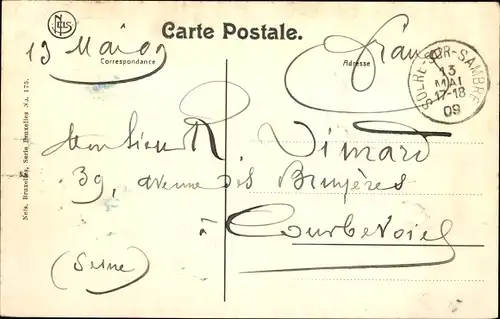 NELS
Carte Postale.
13 Mai 09
France
Correspondance
Adresse
SOLRE-SUR-SAMBRE
13
MAI
17-18
09
Monsieur R. Dimard
39, avenue des Bruyères
à Courbevoie
(Seine)
Nels, Bruxelles, Serie Bruxelles No. 175.